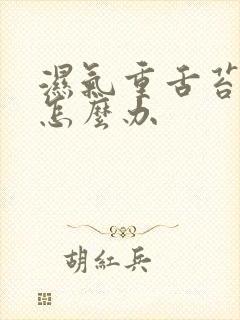 濕氣重舌苔
怎麼办
胡紅兵